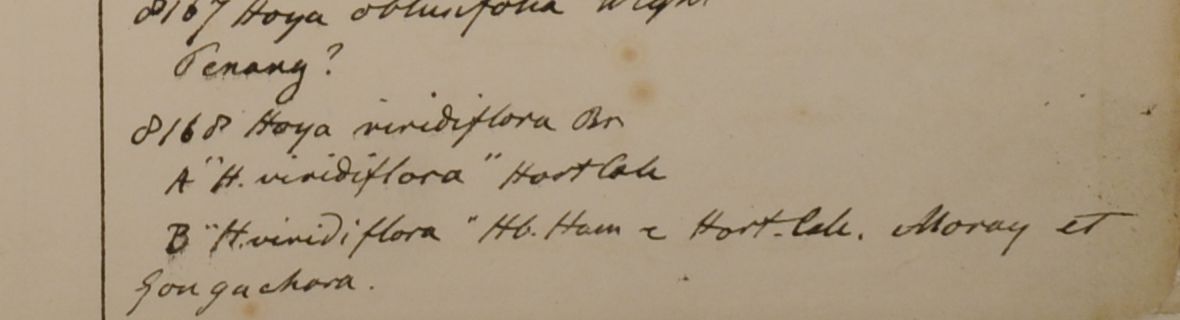 8167 Hoya obtusifolia Wight
Penang?
8168 Hoya viridiflora Br
A "H. viridiflora" Hort Calc
B "H. viridiflora" Hb. Ham e Hort. Calc. Moray et
Gongachora.